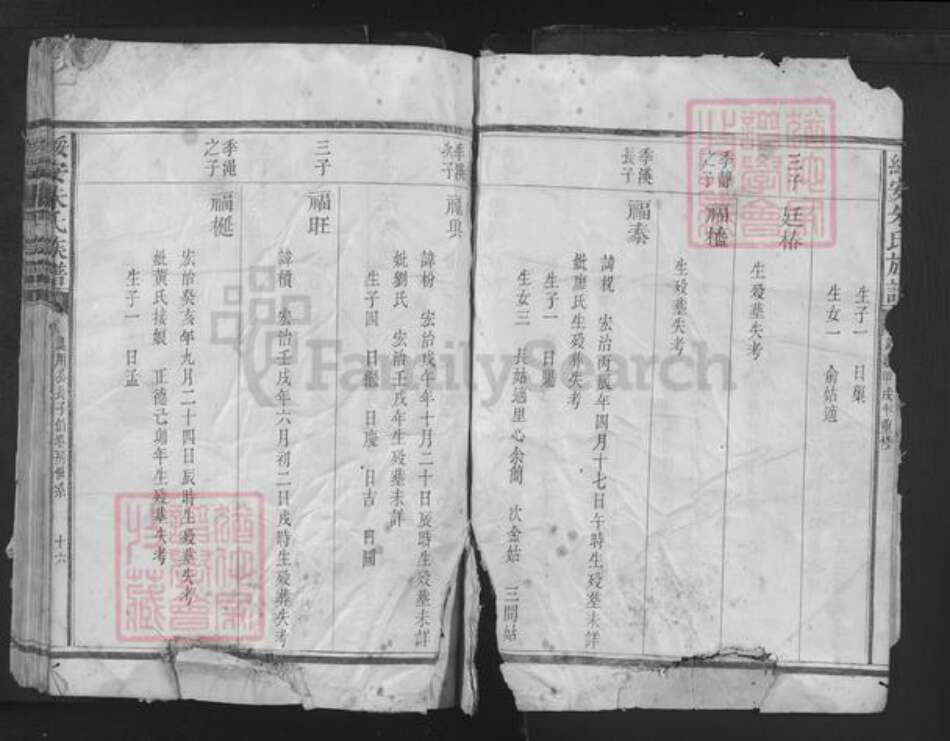 綏安朱氏族譜
甲戌年重修
生子一 日㰖
生女一 俞姑適
三子
廷椿
生歿塋失考
之子
福榼
生歿塋失考
季漢
長子
福泰
諱棿 宏治丙辰年四月十七日午時生歿塋未詳
妣 氏生歿塋失考
生子一
生女三 長姑適里心余簡 次金姑 三閏姑
長子
福興
諱枌 宏治戊午年十月二十日辰時生歿塋未詳
妣劉氏 宏治壬戌年生歿塋未詳
生子四 日 日慶 日吉 日圓
三子
福旺
諱積 宏治壬戌年六月初二日戌時生歿塋失考
季澠
之子
福梴
宏治癸亥年九月二十四日辰時生歿塋失考
妣黃氏接娘 正德己卯年生歿塋失考
生子一 日孟
綏安朱氏族譜
十六
FamilySearch